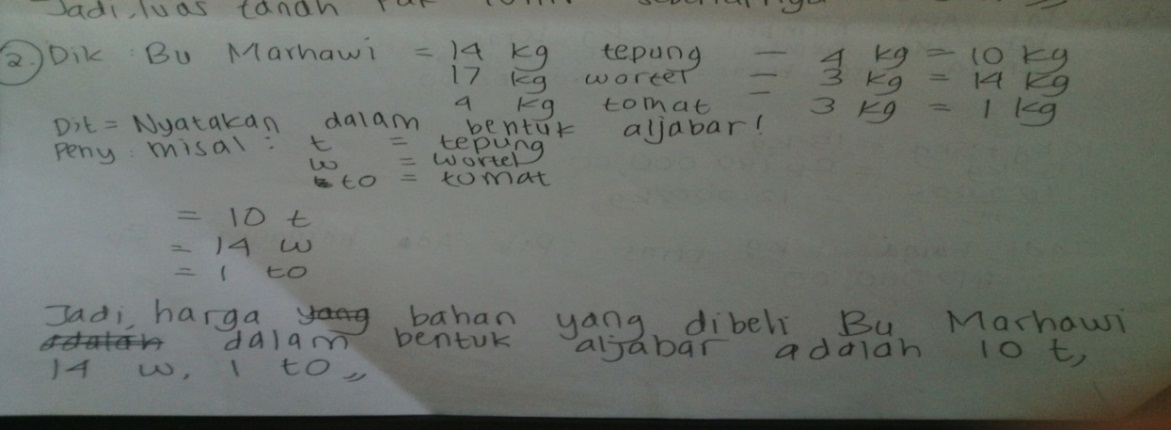 Jadi, luas tanah
2. Dik : Bu Marhawi = 14 kg tepung — 4 kg = 10 kg
17 kg wortel — 3 kg = 14 kg
4 kg tomat — 3 kg = 1 kg
Dit = Nyatakan dalam bentuk aljabar!
Peny misal : t = tepung
w = wortel
to = tomat
= 10 t
= 14 w
= 1 to
Jadi, harga yang bahan yang dibeli Bu Marhawi
adalah dalam bentuk aljabar adalah 10 t,
14 w, 1 to